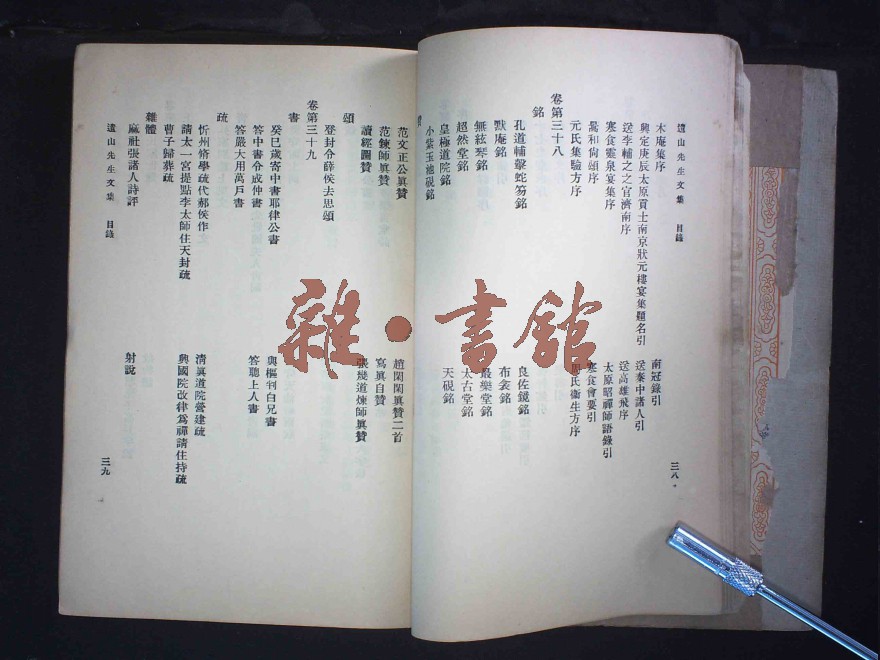 遺山先生文集 目錄 三八
木庵集序 南冠錄引
興定庚辰太原貢士南京狀元樓宴集題名引 送秦中諸人引
送李輔之之官濟南序 送高雄飛序
寒食靈泉宴集序 太原昭禪師語錄引
暠和尙頌序 寒食會要引
元氏集驗方序 周氏衞生方序
卷第三十八
銘
孔道輔擊蛇笏銘 良佐鏡銘
默庵銘 布衾銘
無絃琴銘 最樂堂銘
超然堂銘 太古堂銘
皇極道院銘 天硯銘
小紫玉池硯銘
贊
范文正公眞贊 趙閑閑眞贊二首
范鍊師眞贊 寫眞自贊
讀經圖贊 張幾道煉師眞贊
頌
登封令薛侯去思頌
卷第三十九
書
癸巳歲寄中書耶律公書 與樞判白兄書
答中書令成仲書 答聰上人書
答嚴大用萬戶書
疏
忻州脩學疏代郝侯作 淸眞道院營建疏
請太一宮提點李太師住天封疏 興國院改律爲禪請住持疏
曹子歸葬疏
雜體
麻杜張諸人詩評 射說
遺山先生文集 目錄 三九
雜·書館